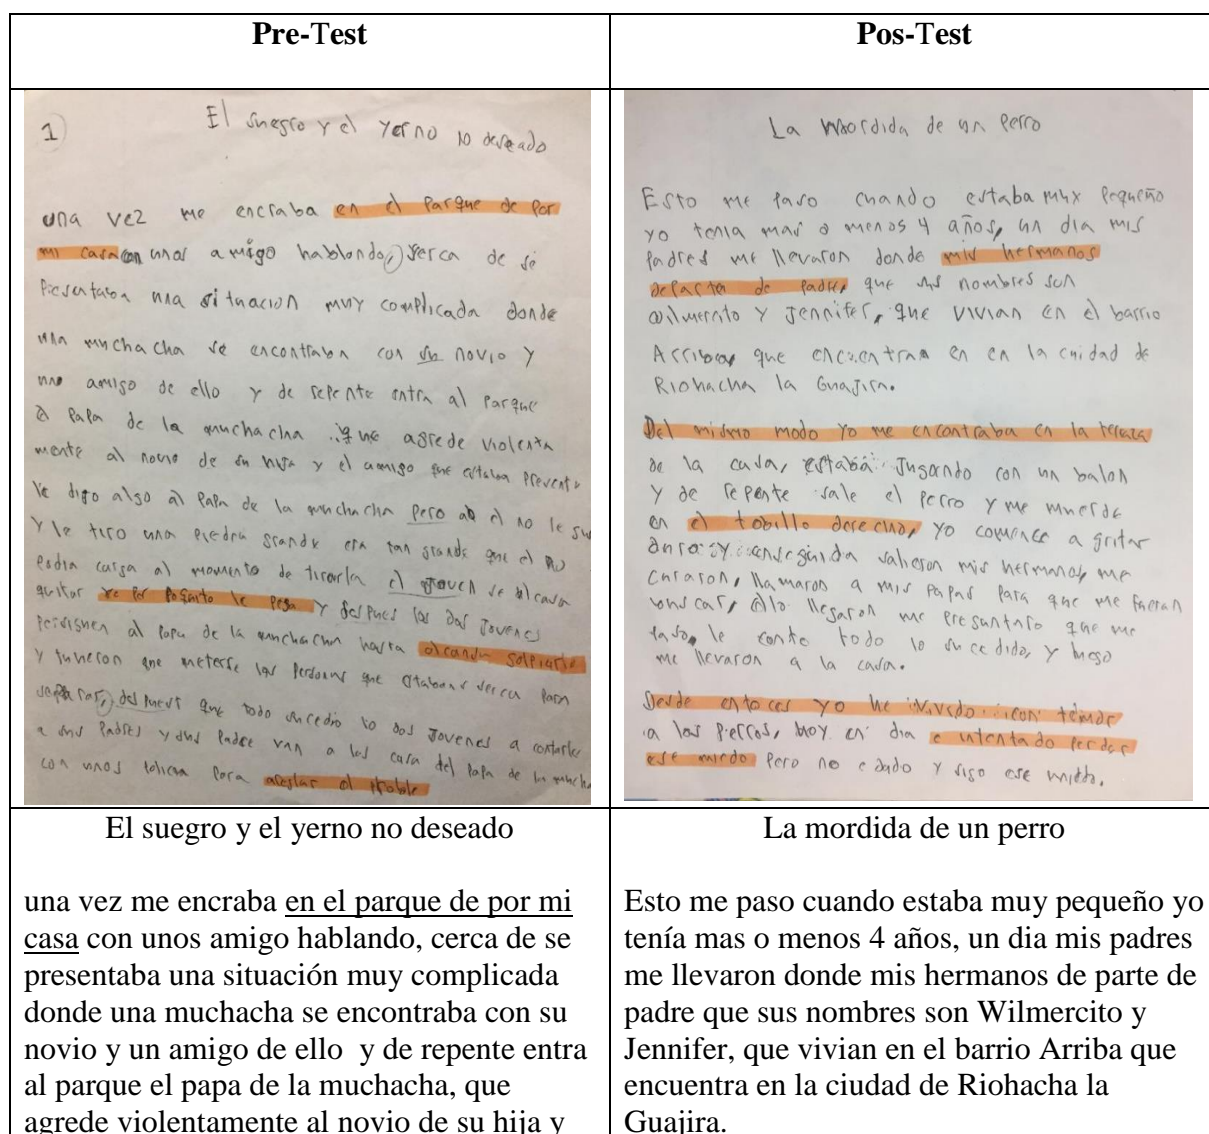 Pre-Test
1) El suegro y el yerno no deseado
una vez me encraba en el parque de por
mi casa con unos amigo hablando, serca de se
Presentaba una situacion muy complicada donde
una muchacha se encontraba con su novio y
uno amigo de ello y de repente entra al parque
el papa de la muchacha que agrede violenta
mente al novio de su hija y el amigo que estaba
le digo algo al papa de la muchacha pero a el no le
Y le tiro una piedra grande era tan grande que el no
podia carga al momento de tirarla el joven se alcasa
quitar y despues los dos jovenes
persiguen al papa de la muchacha hasta
y tuvieron que meterse las personas que estaban serca para
separar, despues que todo sucedio lo dos jovenes a contarle
a sus padres y sus padre van a las casa del papa de la
con unos para
Pos-Test
La mordida de un perro
Esto me paso cuando estaba muy pequeño
yo tenia mas o menos 4 años, un dia mis
padres me llevaron donde mis hermanos
departe de padre, que sus nombres son
Wilmercito y Jennifer, que vivian en el barrio
Arriba que encuentran en en la cuidad de
Riohacha la Guajira.
Del mismo modo yo me encontraba en la teraza
de la casa, estaba jugando con un balon
y de repente sale el perro y me muerde
en el tobillo derecho, yo comence a gritar
duro y enseguida salieron mis hermanos, me
curaron, llamaron a mis papas para que me fueran
buscar, ello llegaron me preguntaro que me
paso, le conte todo lo sucedido, y luego
me llevaron a la casa.
Desde entoces yo he vivido con temor
a los perros, hoy en dia e intentado perder
ese miedo pero no e dado y sigo ese miedo.
El suegro y el yerno no deseado
una vez me encraba en el parque de por mi
casa con unos amigo hablando, cerca de se
presentaba una situación muy complicada
donde una muchacha se encontraba con su
novio y un amigo de ello y de repente entra
al parque el papa de la muchacha, que
agrede violentamente al novio de su hija y
La mordida de un perro
Esto me paso cuando estaba muy pequeño yo
tenía mas o menos 4 años, un dia mis padres
me llevaron donde mis hermanos de parte de
padre que sus nombres son Wilmercito y
Jennifer, que vivian en el barrio Arriba que
encuentra en la ciudad de Riohacha la
Guajira.